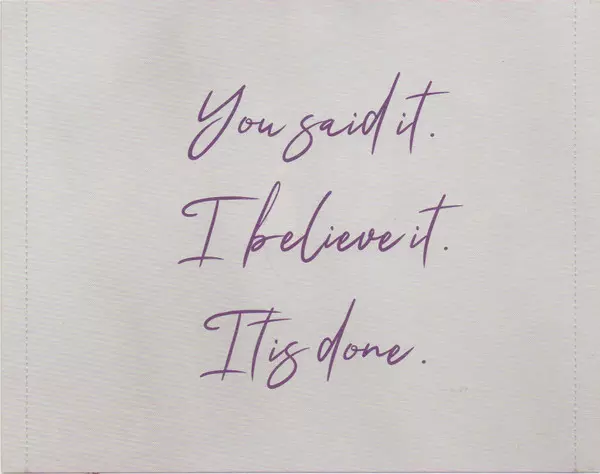 You said it.
I believe it.
It is done.